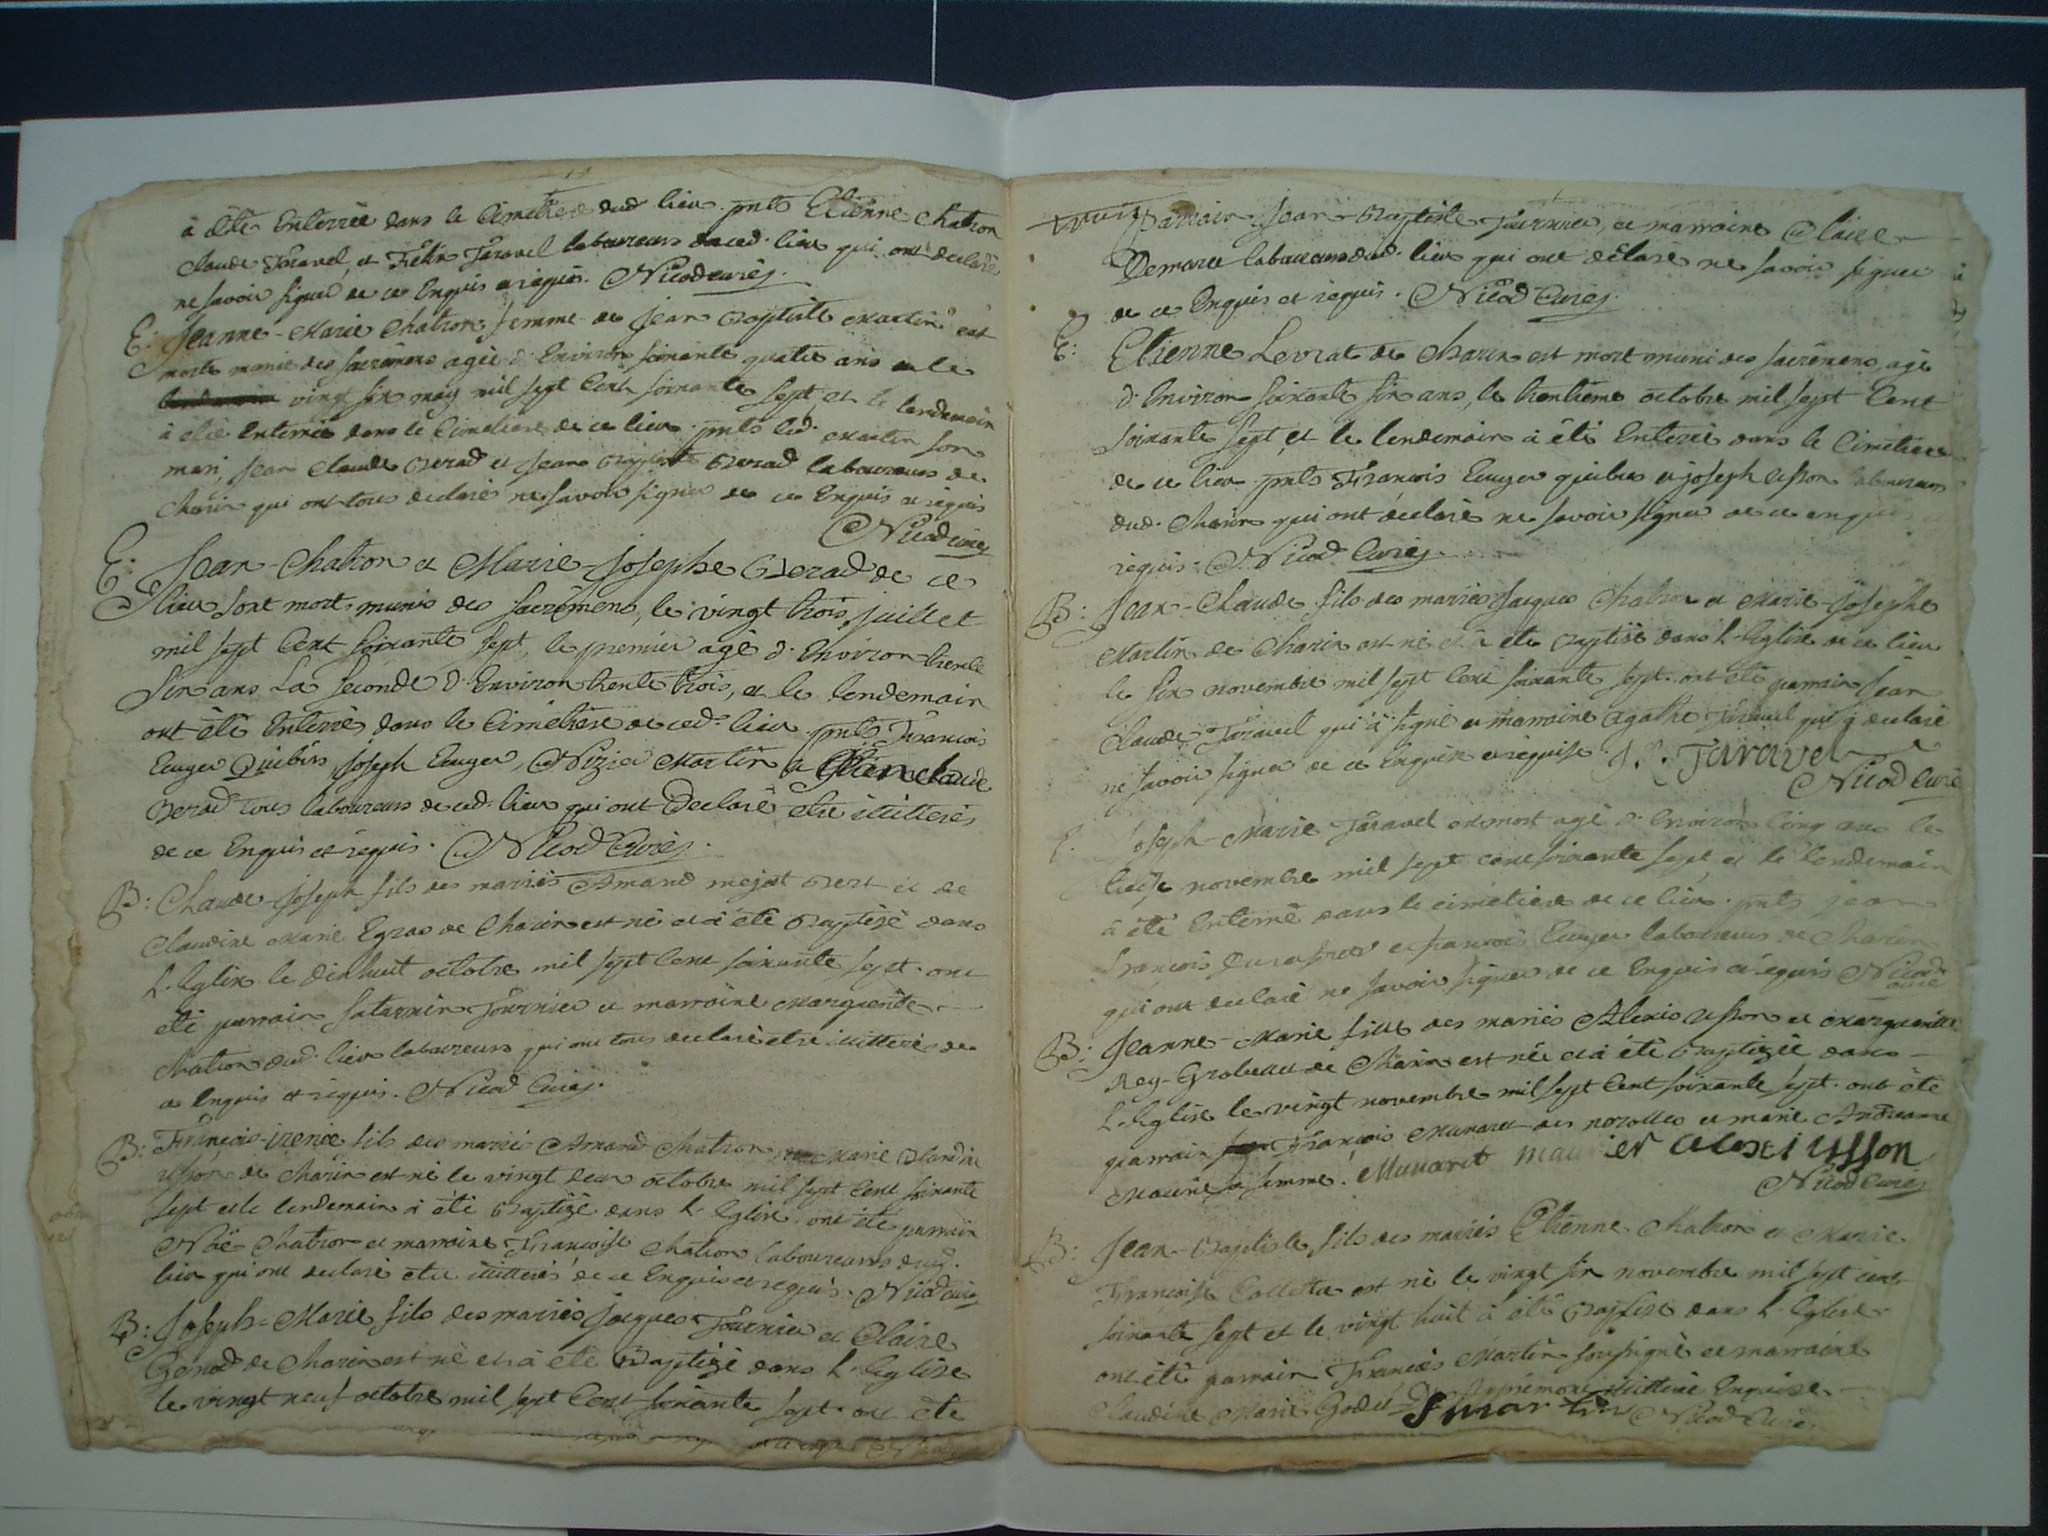 à été Enterrée dans le Cimetiere dud lieu. pnts Etienne Chatron
Claude Taravel, et Felix Taravel laboureurs ducd. lieu qui ont declaré
ne savoir signer de ce Enquis et requis. Nicod curé.
E: Jeanne-Marie Chatron femme de Jean Baptiste Martin est
morte munie des sacrémens agée d'Environ soixante quatre ans le
vingt six may mil sept Cent soixante sept, et le lendemain
à été Enterrée dans le Cimetiere de ce lieu. pnts led. Martin son
mari, Jean Claude Berad et Jean Baptiste Berad laboureurs de
Charix qui ont tous declaré ne savoir signer de ce Enquis et requis
Nicod curé
E: Jean-Chatron et Marie-Josephe Berad de ce
lieu sont mort munis des sacrémens, le vingt trois juillet
mil sept Cent soixante sept, le premier agé d'Environ trente
six ans La seconde d'Environ trente trois, et le lendemain
ont été Enterrés dans le Cimetière de ced. lieu. pnts François
Euger Quibus, Joseph Euger, Nizier Martin et Claude
Berad tous laboureurs de ced. lieu qui ont Declaré etre illitterés
de ce Enquis et requis. Nicod Curé.
B: Claude-Joseph fils des mariés Amand mejat Bert et de
Claudine Marie Egraz de Charix est né et à été Baptizé dans
L'Eglise le dixhuit octobre mil sept Cent soixante sept. ont
été parrain Saturnin Tournier et marraine Marguerite
Chatron dud. lieu laboureurs qui ont tous declaré etre illitterés de
ce Enquis et requis. Nicod Curé.
B: François-irenée fils des mariés Amand Chatron Marie Blandine
usson de Charix est né le vingt deux octobre mil sept Cent soixante
sept et le lendemain à été Baptizé dans L'Eglise. ont été parrain
Noë Chatron et marraine Françoise Chatron laboureurs dud.
lieu qui ont declaré etre illitterés de ce Enquis et requis. Nicod curé
B: Joseph-Marie fils des mariés jacques Tournier et Claire
Genod de Charix est né et à été Baptizé dans L'Eglise
le vingt neuf octobre mil sept Cent soixante sept. ont été
Parrain Jean-Baptiste Tournier, et marraine Claire
Demarez laboureurs dud. lieu qui ont déclaré ne savoir signer
de ce Enquis et requis. Nicod Curé.
E: Etienne Levrat de Charix est mort muni des sacrémens, agé
d'Environ soixante six ans, le trentième octobre mil sept Cent
soixante sept, et le lendemain à été Enterré dans le Cimetiere
de ce lieu. pnts François Euger quibus et joseph usson laboureurs
dud. Charix qui ont déclaré ne savoir signer de ce enquis
requis. Nicod Curé.
B: Jean-Claude fils des mariés Jacques Chatron et Marie-Josephe
Martin de Charix est né et à été Baptizé dans L'Eglise de ce lieu
le six novembre mil sept Cent soixante sept. ont été parrain Jean
Claude Taravel qui à signé et marraine Agathe Taravel qui à declaré
ne savoir signer de ce Enquise et requise. J. C. Taravel
Nicod Curé
E. Joseph-Marie Taravel est mort agé d'Environ Cinq ans le
treize novembre mil sept cent soixante sept, et le lendemain
à été Enterré dans le cimetière de ce lieu. pnts jean
François et francois Euger laboureurs de Charix
qui ont declaré ne savoir signer de ce Enquis et requis Nicod
curé
B: Jeanne-Marie fille des mariés Alexis usson et Marguerite
Rey-Grobellet de Charix est née et à été Baptizée dans
L'Eglise le vingt novembre mil sept Cent soixante sept. ont été
parrain François Munaret des norolles et marie Andreanne
Maurier sa femme. Munarit maurier alexi usson
Nicod Curé
B: Jean-Baptiste, fils des mariés Etienne Chatron et Marie
Françoise Collettaz est né le vingt six novembre mil sept cent
soixante sept et le vingt huit à été Baptisé dans L'Eglise
ont été parrain François Martin soussigné et marraine
Claudine Marie Godet illitterée Enquise
f mar tin Nicod Curé.